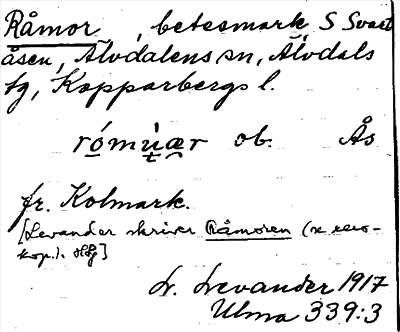 Råmor, betesmark S Svart
åsen, Älvdalens sn, Älvdals
tg, Kopparbergs l.
rómùær ob. Ås
fr. Kolmark.
[Levander skriver Råmoren (x rero-
kop.). Hbg]
L. Levander 1917
Ulma 339:3